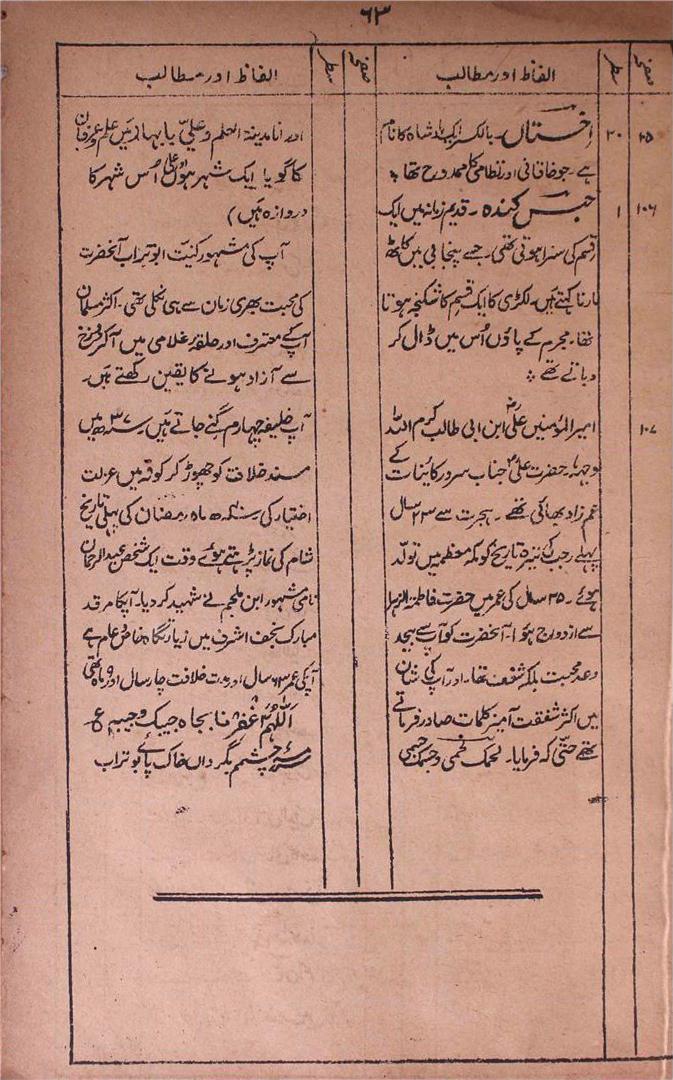 ۶۳
صفحہ سطر الفاظ اور مطالب
۲۰ اخستاں۔ بالکسر ایک بادشاہ کا نام
ہے۔ جو خاقانی اور نظامی کا ممدوح تھا ؞
۱۰۶ ۱ حبس کندہ۔ قدیم زمانہ میں ایک
قسم کی سزا ہوتی تھی۔ جسے پنجابی میں کاٹھ
مارنا کہتے ہیں۔ لکڑی کا ایک قسم کا شکنجہ ہوتا
تھا۔ مجرم کے پاؤں اُس میں ڈال کر
دباتے تھے ؞
۱۰۷ امیر المؤمنین علیؓ ابن ابی طالب کرم اللہ
وجہہٗ۔ حضرت علیؓ جناب سرور کائنات کے
عم زاد بھائی تھے۔ ہجرت سے ۲۳ سال
پہلے رجب کی تیرہ تاریخ کو مکہ معظمہ میں تولّد
ہوئے۔ ۲۵ سال کی عمر میں حضرت فاطمۃ الزہرا
سے ازدواج ہؤا۔ آنحضرت کو آپ سے بیحد
وعد محبت بلکہ شغف تھا۔ اور آپ کی شان
میں اکثر شفقت آمیز کلمات صادر فرماتے
تھے حتّی کہ فرمایا۔ لحمک لحمی وجسمک جسمی
صفحہ سطر الفاظ اور مطالب
اور انا مدینۃ العلم و علیّ بابہا (میں علم و عرفان
کا گویا ایک شہر ہوں اور علی اُس شہر کا
دروازہ ہیں)
آپ کی مشہور کنیت ابو تراب آنحضرت
کی محبت بھری زبان سے ہی نکلی تھی۔ اکثر مسلمان
آپ کے معترف اور حلقۂ غلامی میں آ کر دوزخ
سے آزاد ہونے کا یقین رکھتے ہیں۔
آپ خلیفہ چہارم گنے جاتے ہیں ۳۷ھ میں
مسند خلافت کو چھوڑ کر کوفہ میں عزلت
اختیار کی ماہ رمضان کی پہلی تاریخ
شام کی نماز پڑھتے ہوئے وقت ایک شخص عبدالرحمان
نامی مشہور ابن ملجم نے شہید کر دیا۔ آپکا مرقد
مبارک نجف اشرف میں زیارتگاہ خاص و عام ہے
آپکی عمر ۶۳ سال اور مدت خلافت چار سال اور ۹ ماہ تھی
اللّٰہم اغفرنا بجاہ حبیبک و حبیبہ ع
سرمۂ چشمم بگرداں خاک پائے بو تراب